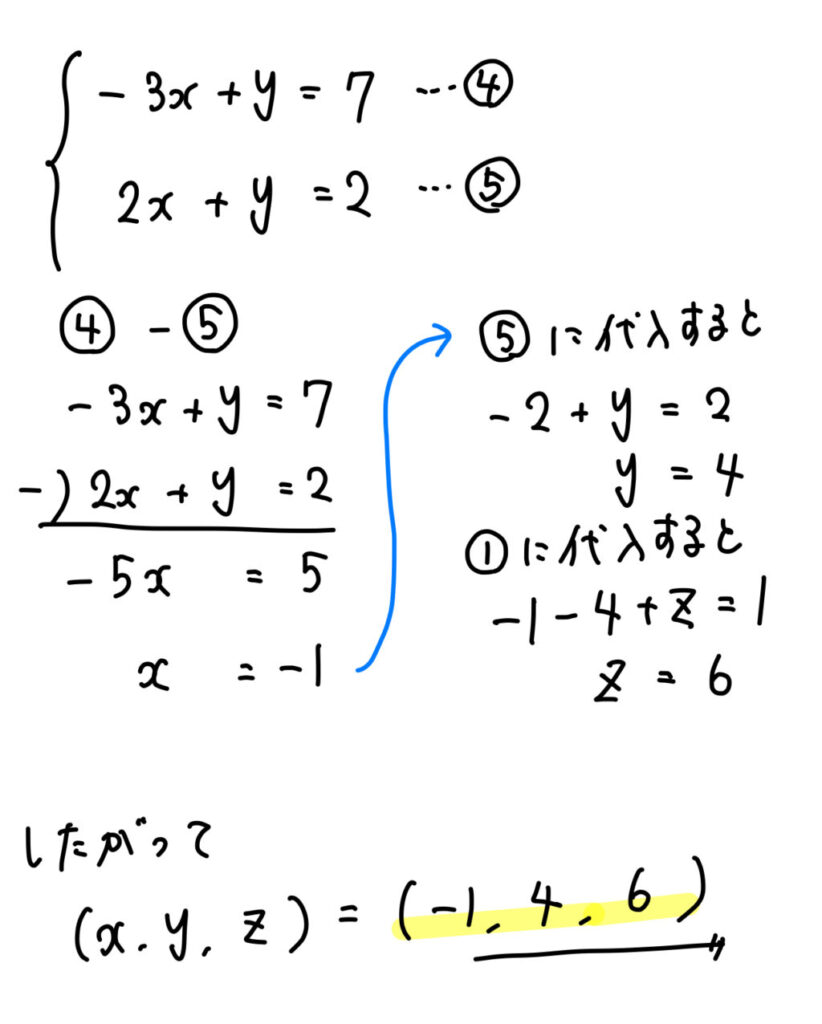 - 3x + y = 7 … ④
2x + y = 2 … ⑤
④ - ⑤
- 3x + y = 7
-) 2x + y = 2
- 5x = 5
x = -1
⑤に代入すると
- 2 + y = 2
y = 4
①に代入すると
-1 - 4 + z = 1
z = 6
したがって
(x, y, z) = (-1, 4, 6)